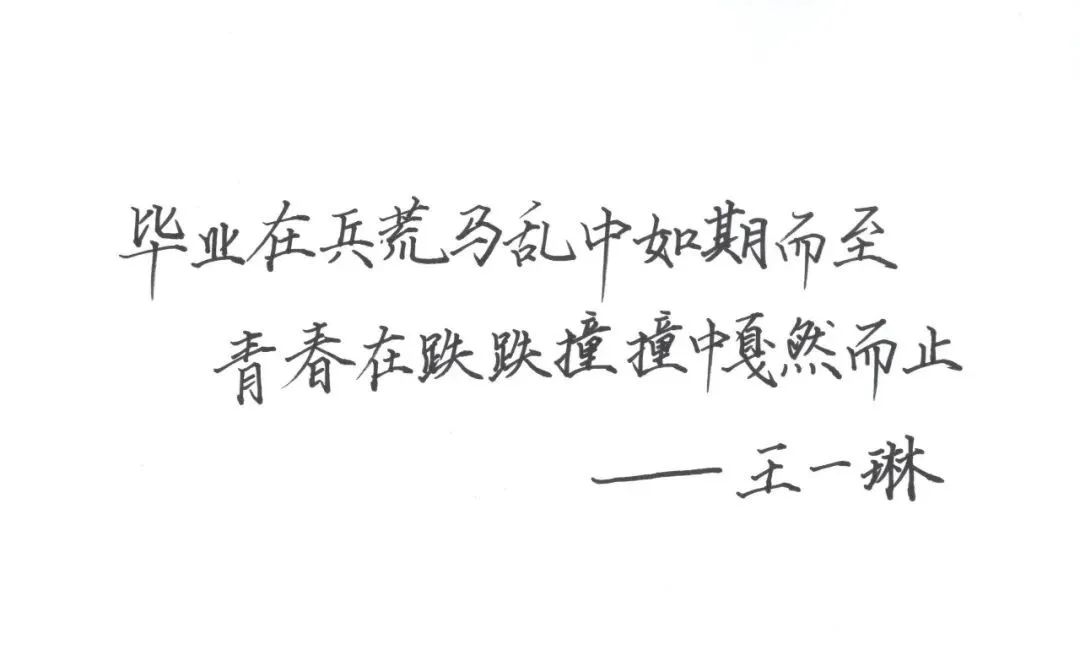 毕业在兵荒马乱中如期而至
青春在跌跌撞撞中戛然而止
——王一琳